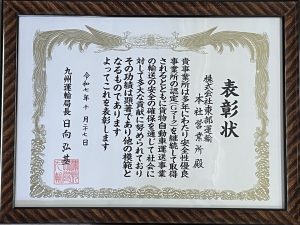 表彰状
株式会社東部運輸
本社営業所 殿
貴事業所は多年にわたり安全性優良
事業所の認定(Gマーク)を継続して取得
されるとともに貨物自動車運送事業
の輸送の安全の確保を通じて社会に
対して多大な貢献に努められており
その功績は顕著であり他の模範と
なるものであります
よってこれを表彰します
令和七年十月二十七日
九州運輸局長 日向弘基